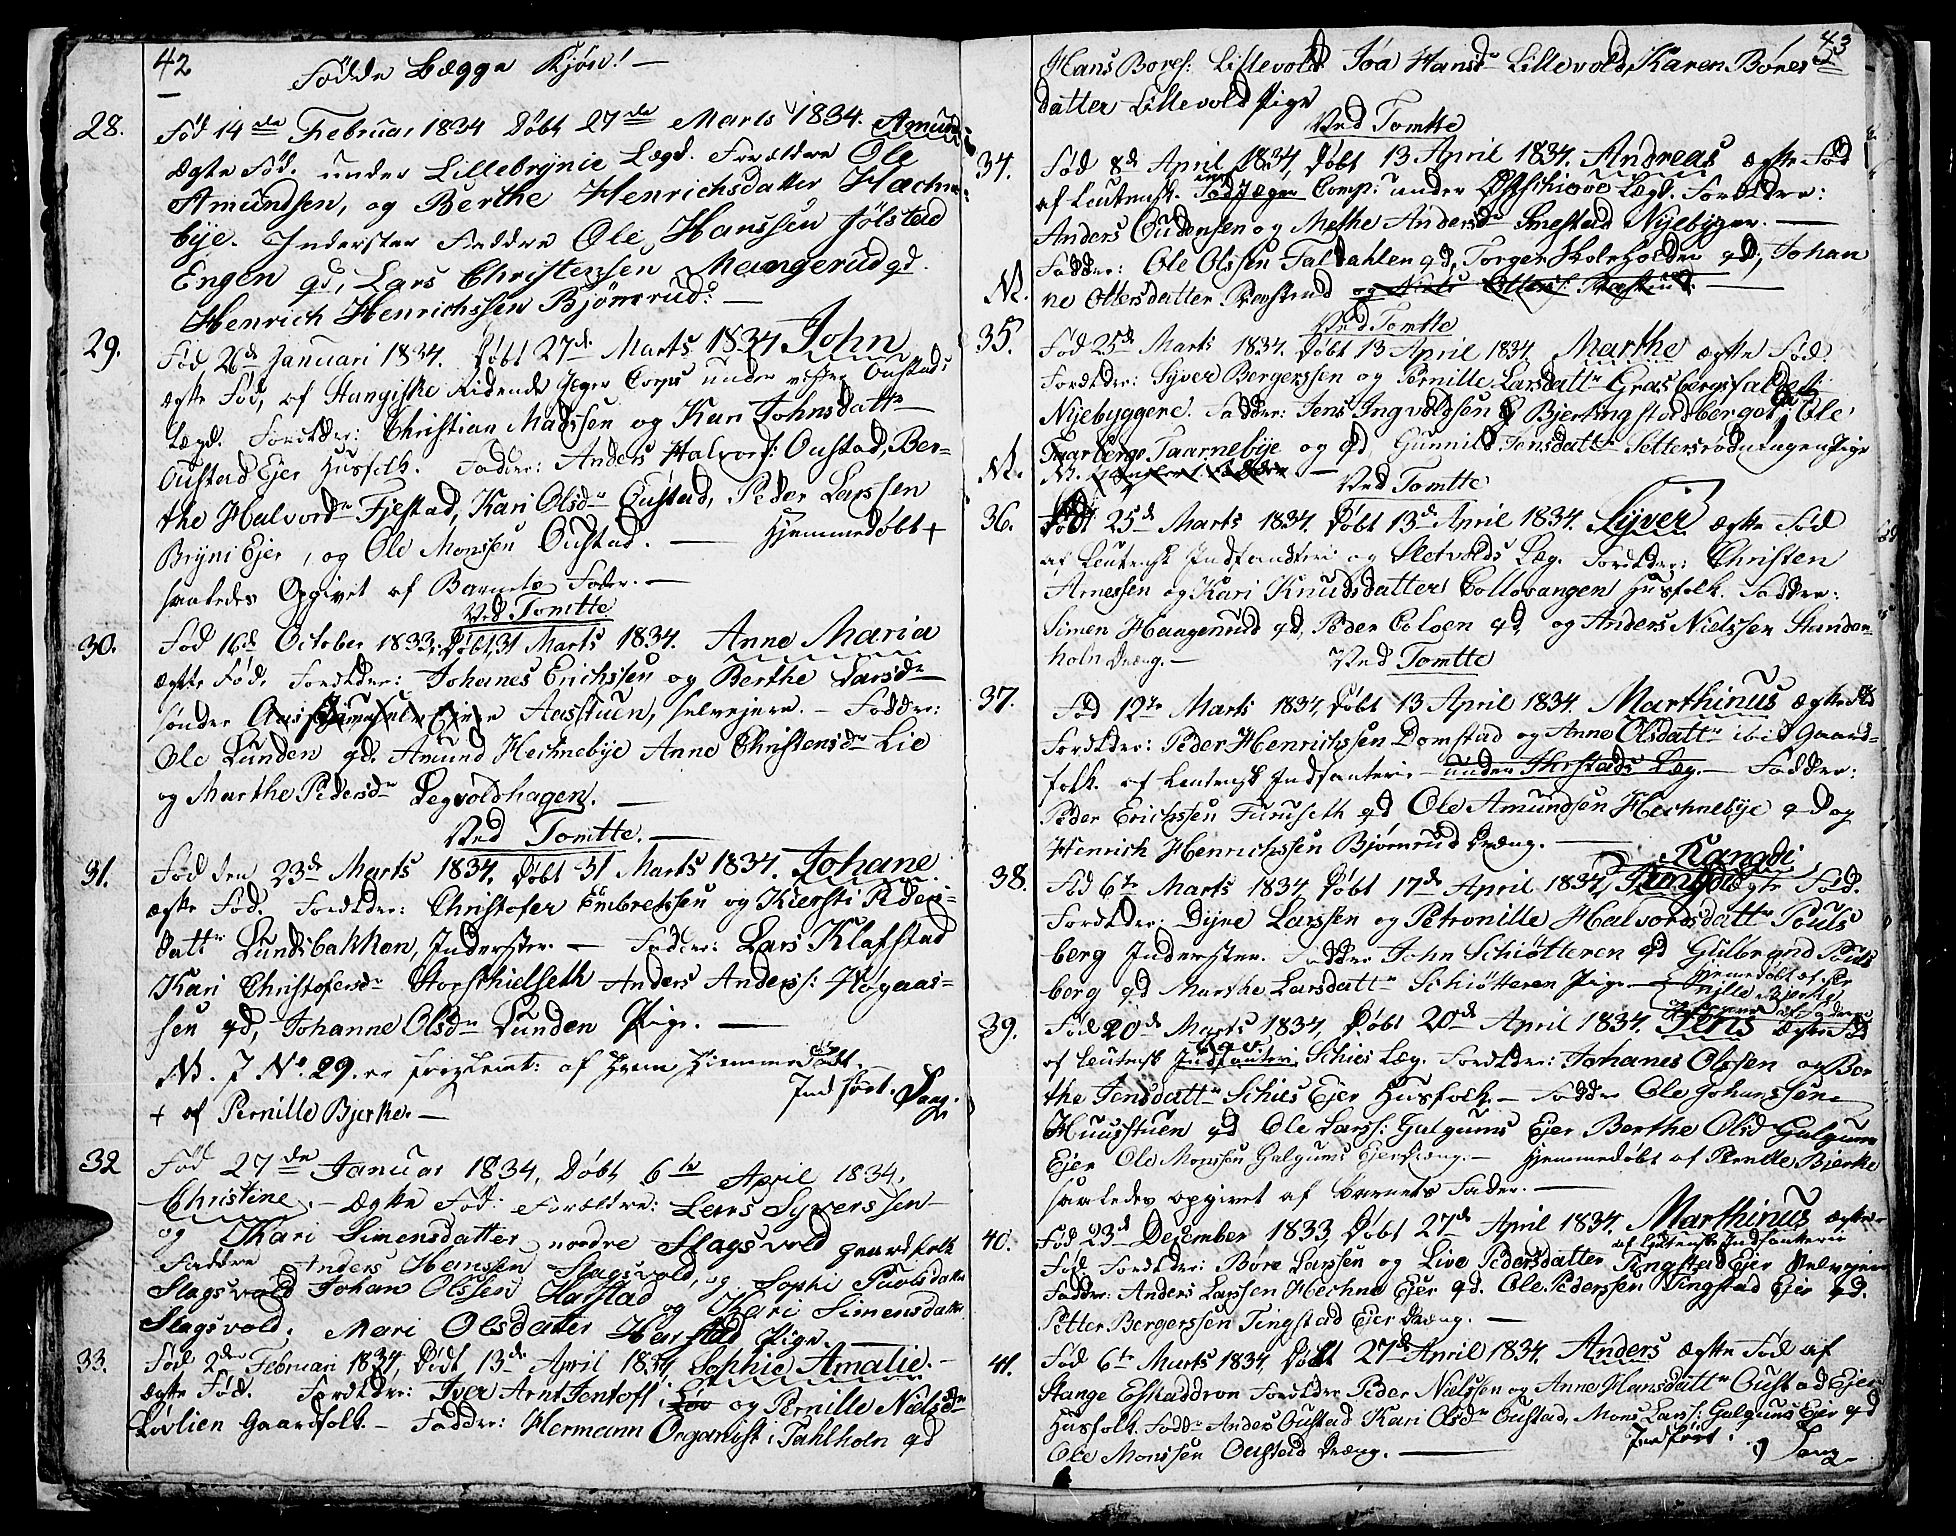 42
Fødde Begge Kjøn! —
28. Fød 14de Februar 1834 Døbt 27de Marts 1834. Amund
ægte Fød. under Lillebrynie Lægd. Forældre Ole
Amundsen, og Berthe Henrichsdatter Hechne-
bye. Inderster Faddre Ole Hanssen Jølstad
Engen gd, Lars Christenssen Mangerud gd.
Henrich Henrichssen Bjørnrud: —
29. Fød 26de Januari 1834. Døbt 27de Marts 1834 John
ægte Fød, af Stangiske Ridende Jeger Corps under Oustad:
Lægd. Forældre: Christian Madssen og Kari Johnsdattr
Oustad Ejer Husfolk. Faddre: Anders Halvors: Oustad, Ber-
the Halvordr Fjestad, Kari Olsdr Oustad, Peder Larssen
Bryni Ejer, og Ole Monssen Oustad. — Hjemmedøbt +
saaledes Opgivet af Barnets Fader. —
Ved Tomtte
30. Fød 16d October 1833, Døbt 31 Marts 1834. Anne Maria
ægte Fød. Forældre: Johanes Erichssen og Berthe Larsdr
søndre Aasstuen, selvejere. — Faddre:
Ole Lunden gd. Amund Hechnebye Anne Christensdr Lie
og Marthe Pedersdr Legvoldhagen. —
Ved Tomtte. —
31. Fød den 23de Marts 1834. Døbt 31 Marts 1834. Johane.
ægte Fød. Forældre: Christofer Embretssen og Kiersti Peders-
dattr Lundsbakken, Inderster. — Faddre: Lars Klafstad
Kari Christofersdr Storskielseth Anders Anders: Høgaas-
sen gd, Johanne Olsdr Lunden Pige. —
NB. I No. 29. er af Hjemmedøbt.
+ af Pernille Bjerke. — Indført.
32 Fød 27de Januar 1834, Døbt 6te April 1834.
Christine. — Ægte Fød: Forældre: Lars Syverssen
og Kari Simensdatter nordre Slagsvold gaardfolk
Faddre Anders Hanssen Slagsvold, og Sophi Paulsdatter
Slagsvold Johan Olssen Harstad og Kari Simensdatter
Slagsvold, Mari Olsdatter Harstad Pige. —
33. Fød 2den Februari 1834, Døbt 13de April 1834 Sophie Amalie. —
ægte Fød. Forældre: Iver Arnt Jentoft og Pernille Nielsdr
Løvlien Gaardfolk. — Faddre: Hermann Organist i Tahlholn gd
43
Hans Bores: Lillevold Joa Hansdr Lillevold, Karen Børes
datter Lillevold Pige
Ved Tomtte
34. Fød 8d April 1834, Døbt 13 April 1834. Andreas ægte Fød
af Leutensk. Fodjæger Comp: under Lægd. Forældre:
Anders Oudensen og Methe Andersdr Smestad Nyebygger. —
Faddre: Ole Olssen Faldahlen gd, Torger Skoleholder gd, Johan
NB. ne Ottersdatter Præstrud —
Ved Tomtte
35. Fød 25d Marts 1834. Døbt 13 April 1834. Marthe ægte Fød
Forældre: Syver Bergerssen og Pernille Larsdattr Grasbergsfaldet
Nyebyggere. Faddre: Jens Ingvoldsen Bjerkingstadberget, Ole
Taarnebye og gd Gunnild Jensdattr Settersrødutagen Pige
NB.
Ved Tomtte
36. Født 25d Marts 1834. Døbt 13d April 1834. Syver ægte Fød
af Leutensk Indfandteri og Sletvolds Læg. Forældre: Christen
Arnessen og Kari Knudsdatter Collovangen Husfolk. Faddre:
Simen Haagenrud gd, Peder Coloen gd og Anders Nielssen Standen-
holn Dræng. —
Ved Tomtte
37. Fød 12te Marts 1834, Døbt 13 April 1834. Marthinus ægte Fød
Forældre: Peder Henrichssen Domstad og Anne Olsdattr ibid Gaard-
folk. af Leutensk Indfanteri — — Faddre:
Peder Erichssen Furuseth gd Ole Amundsen Hechnebye gd og
Hinrich Henrichssen Bjørnrud Dræng. —
38. Fød 6te Marts 1834 Døbt 17de April 1834, Rangdi ægte Fød.
Forældre: Dyre Larssen og Petronille Halvordsdattr Pouls
berg Inderster. Faddre John Schiøtteren gd Gulbrand Pouls
berg gd Marthe Larsdattr Schiøtteren Pige — Hjemedøbt af Per
nille Bjerke,
39. Fød 20de Marts 1834, Døbt 20de April 1834. Jens ægte Fød
af Leutensk Schies Læg. Forældre: Johanes Olssen og Ber
the Jensdattr Schies Ejer Husfolk. — Faddre Ole Johanssen
Huusstuen gd Ole Larss: Galgums Ejer Berthe Olsdr Galgums
Ejer Ole Monssen Galgums Ejer Dræng. — Hjemmedøbt af Pernille Bjerke
saaledes opgivet af Barnets Fader. —
40. Fød 23d December 1833, Døbt 27de April 1834. Marthinus ægte
af Leutensk Indfanterie
Fød Forældre: Børe Larssen og Live Pedersdatter Tingstad Ejer Selvejere
Faddre: Anders Larssen Hechne Ejer gd. Ole Pederssen Tingstad Ejer gd.
Petter Bergerssen Tingstad Ejer Dræng. —
41. Fød 6te Marts 1834, Døbt 27de April 1834. Anders ægte Fød af
Stange Eskaddron Forældre Peder Nielssen og Anne Hansdattr Oustad Ejer
Husfolk. Faddr Anders Oustad Kari Olsdr Oustad, Mons Lars: Galguns Ejer gd
Ole Monssen Oustad Dræng. — Indført.